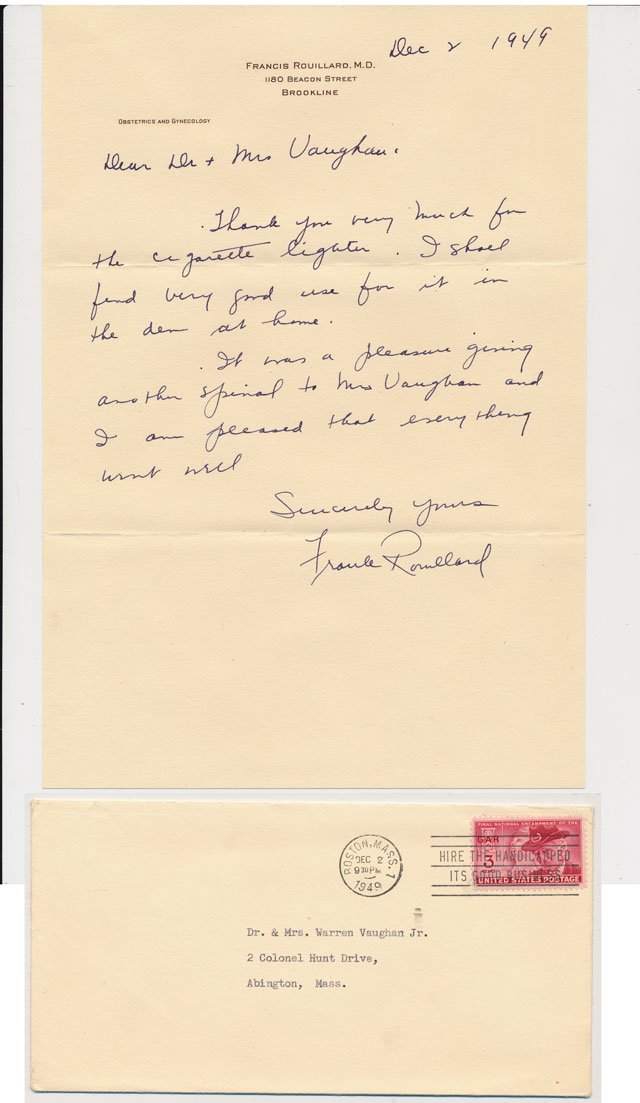 Dec 2 1949
FRANCIS ROUILLARD, M.D.
1180 BEACON STREET
BROOKLINE
OBSTETRICS AND GYNECOLOGY
Dear Dr + Mrs Vaughan.
Thank you very much for
the cigarette lighter. I shall
find very good use for it in
the den at home.
It was a pleasure giving
another spinal to Mrs Vaughan and
I am pleased that everything
went well
Sincerely yours
Frank Rouillard
BOSTON, MASS. 1
DEC 2
9 30 PM
1949
HIRE THE HANDICAPPED
ITS GOOD BUSINESS
FINAL NATIONAL ENCAMPMENT OF THE
GAR
3
UNITED STATES POSTAGE
Dr. & Mrs. Warren Vaughan Jr.
2 Colonel Hunt Drive,
Abington, Mass.